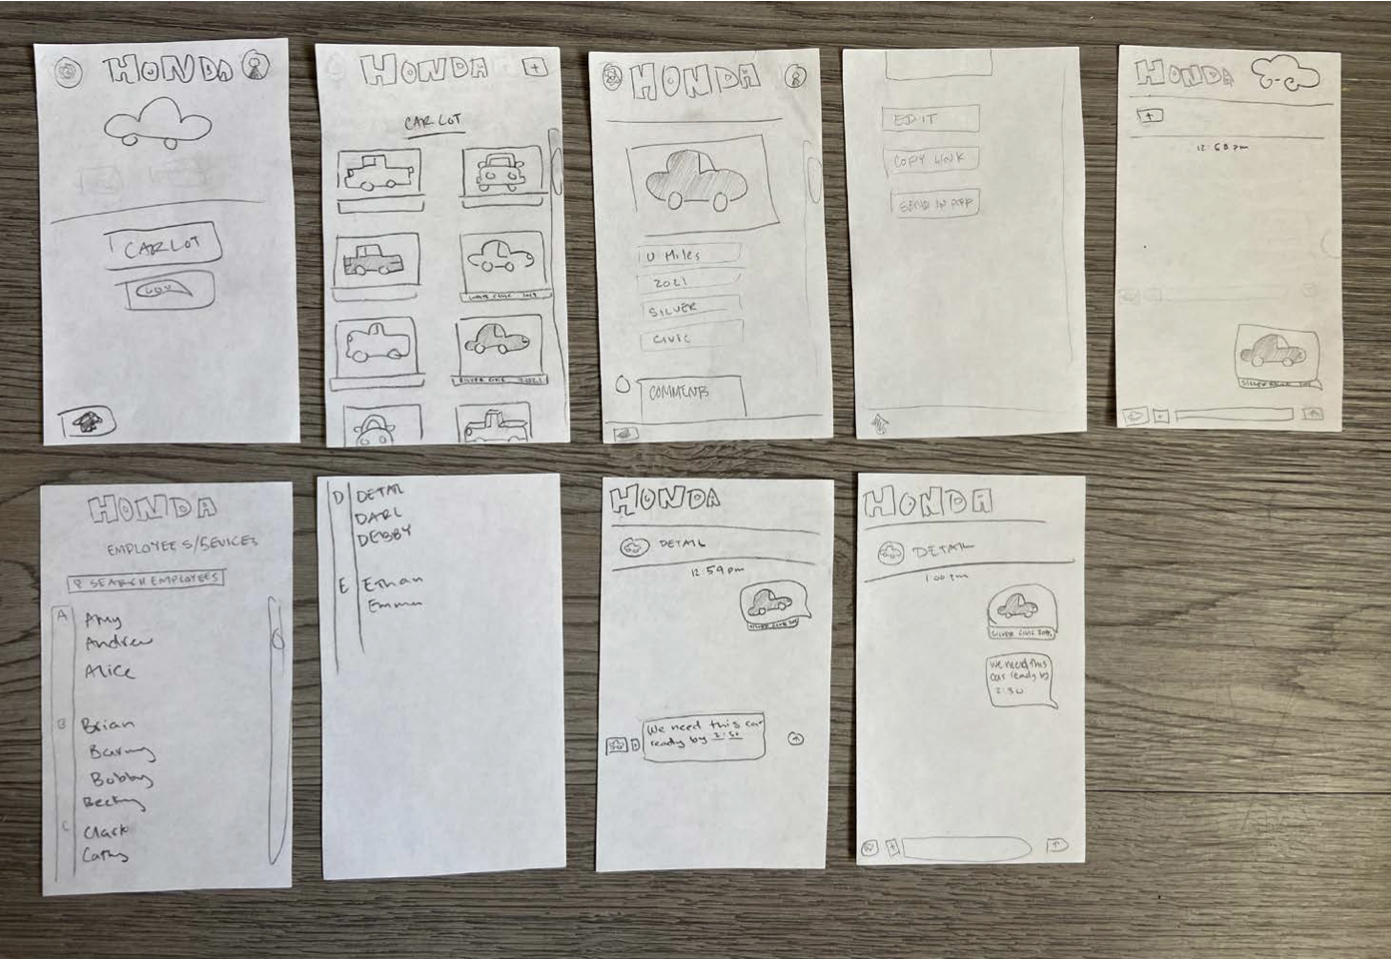 HONDA
CAR LOT
HONDA
+
CAR LOT
SILVER CIVIC 2021
HONDA
0 Miles
2021
SILVER
CIVIC
COMMENTS
EDIT
COPY LINK
SEND IN APP
HONDA
+
HONDA
EMPLOYEES/SEVICES
SEARCH EMPLOYEES
A Amy
Andrew
Alice
B Brian
Barny
Bobby
Becky
C Clark
Cathy
D DETAIL
DARL
DEBBY
E Ethan
Emma
HONDA
DETAIL
12:59 pm
We need this car
ready by 2:30
HONDA
DETAIL
1:00 pm
SILVER CIVIC 2021
we need this
car ready by
2:30
+